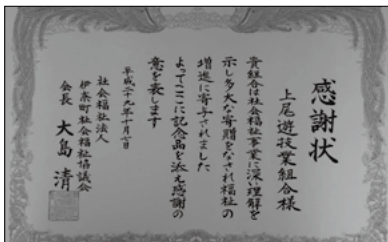 感謝状
上尾遊技業組合様
貴組合は社会福祉事業に深い理解を
示し多大な寄贈をなされ福祉の
増進に寄与されました
よってここに記念品を添え感謝の
意を表します
平成二十九年十月一日
社会福祉法人
伊奈町社会福祉協議会
会長 大島清